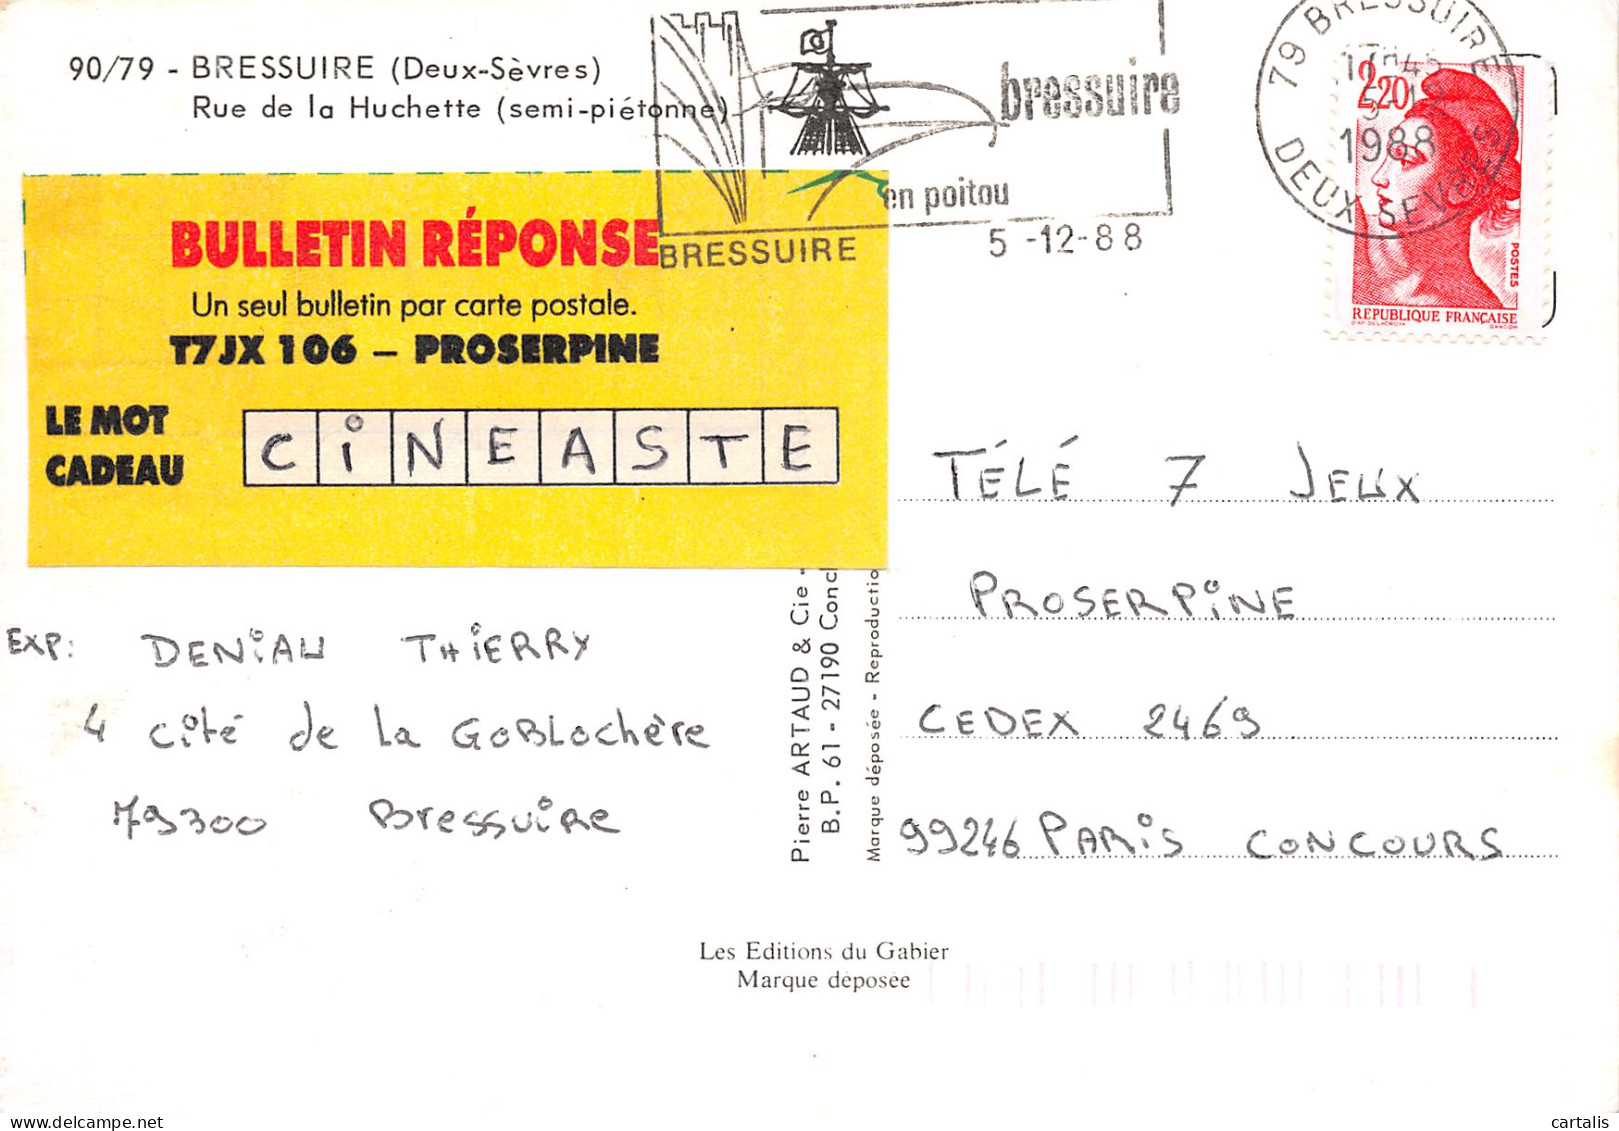 90/79 - BRESSUIRE (Deux-Sèvres)
Rue de la Huchette (semi-piétonne)
bressuire
en poitou
BRESSUIRE
5 -12-88
79 BRESSUIRE
1988
DEUX SEVRES
2,20
POSTES
REPUBLIQUE FRANÇAISE
BULLETIN RÉPONSE
Un seul bulletin par carte postale.
T7JX 106 – PROSERPINE
LE MOT
CADEAU
CiNEASTE
TÉLÉ 7 JEUX
PROSERPiNE
CEDEX 2469
99246 PARiS CONCOURS
EXP: DENiAU THiERRY
4 cité de la GOBLOchère
79300 Bressuire
Pierre ARTAUD & Cie -
B.P. 61 - 27190 Conc
Marque déposée - Reproductio
Les Editions du Gabier
Marque déposée
cartalis